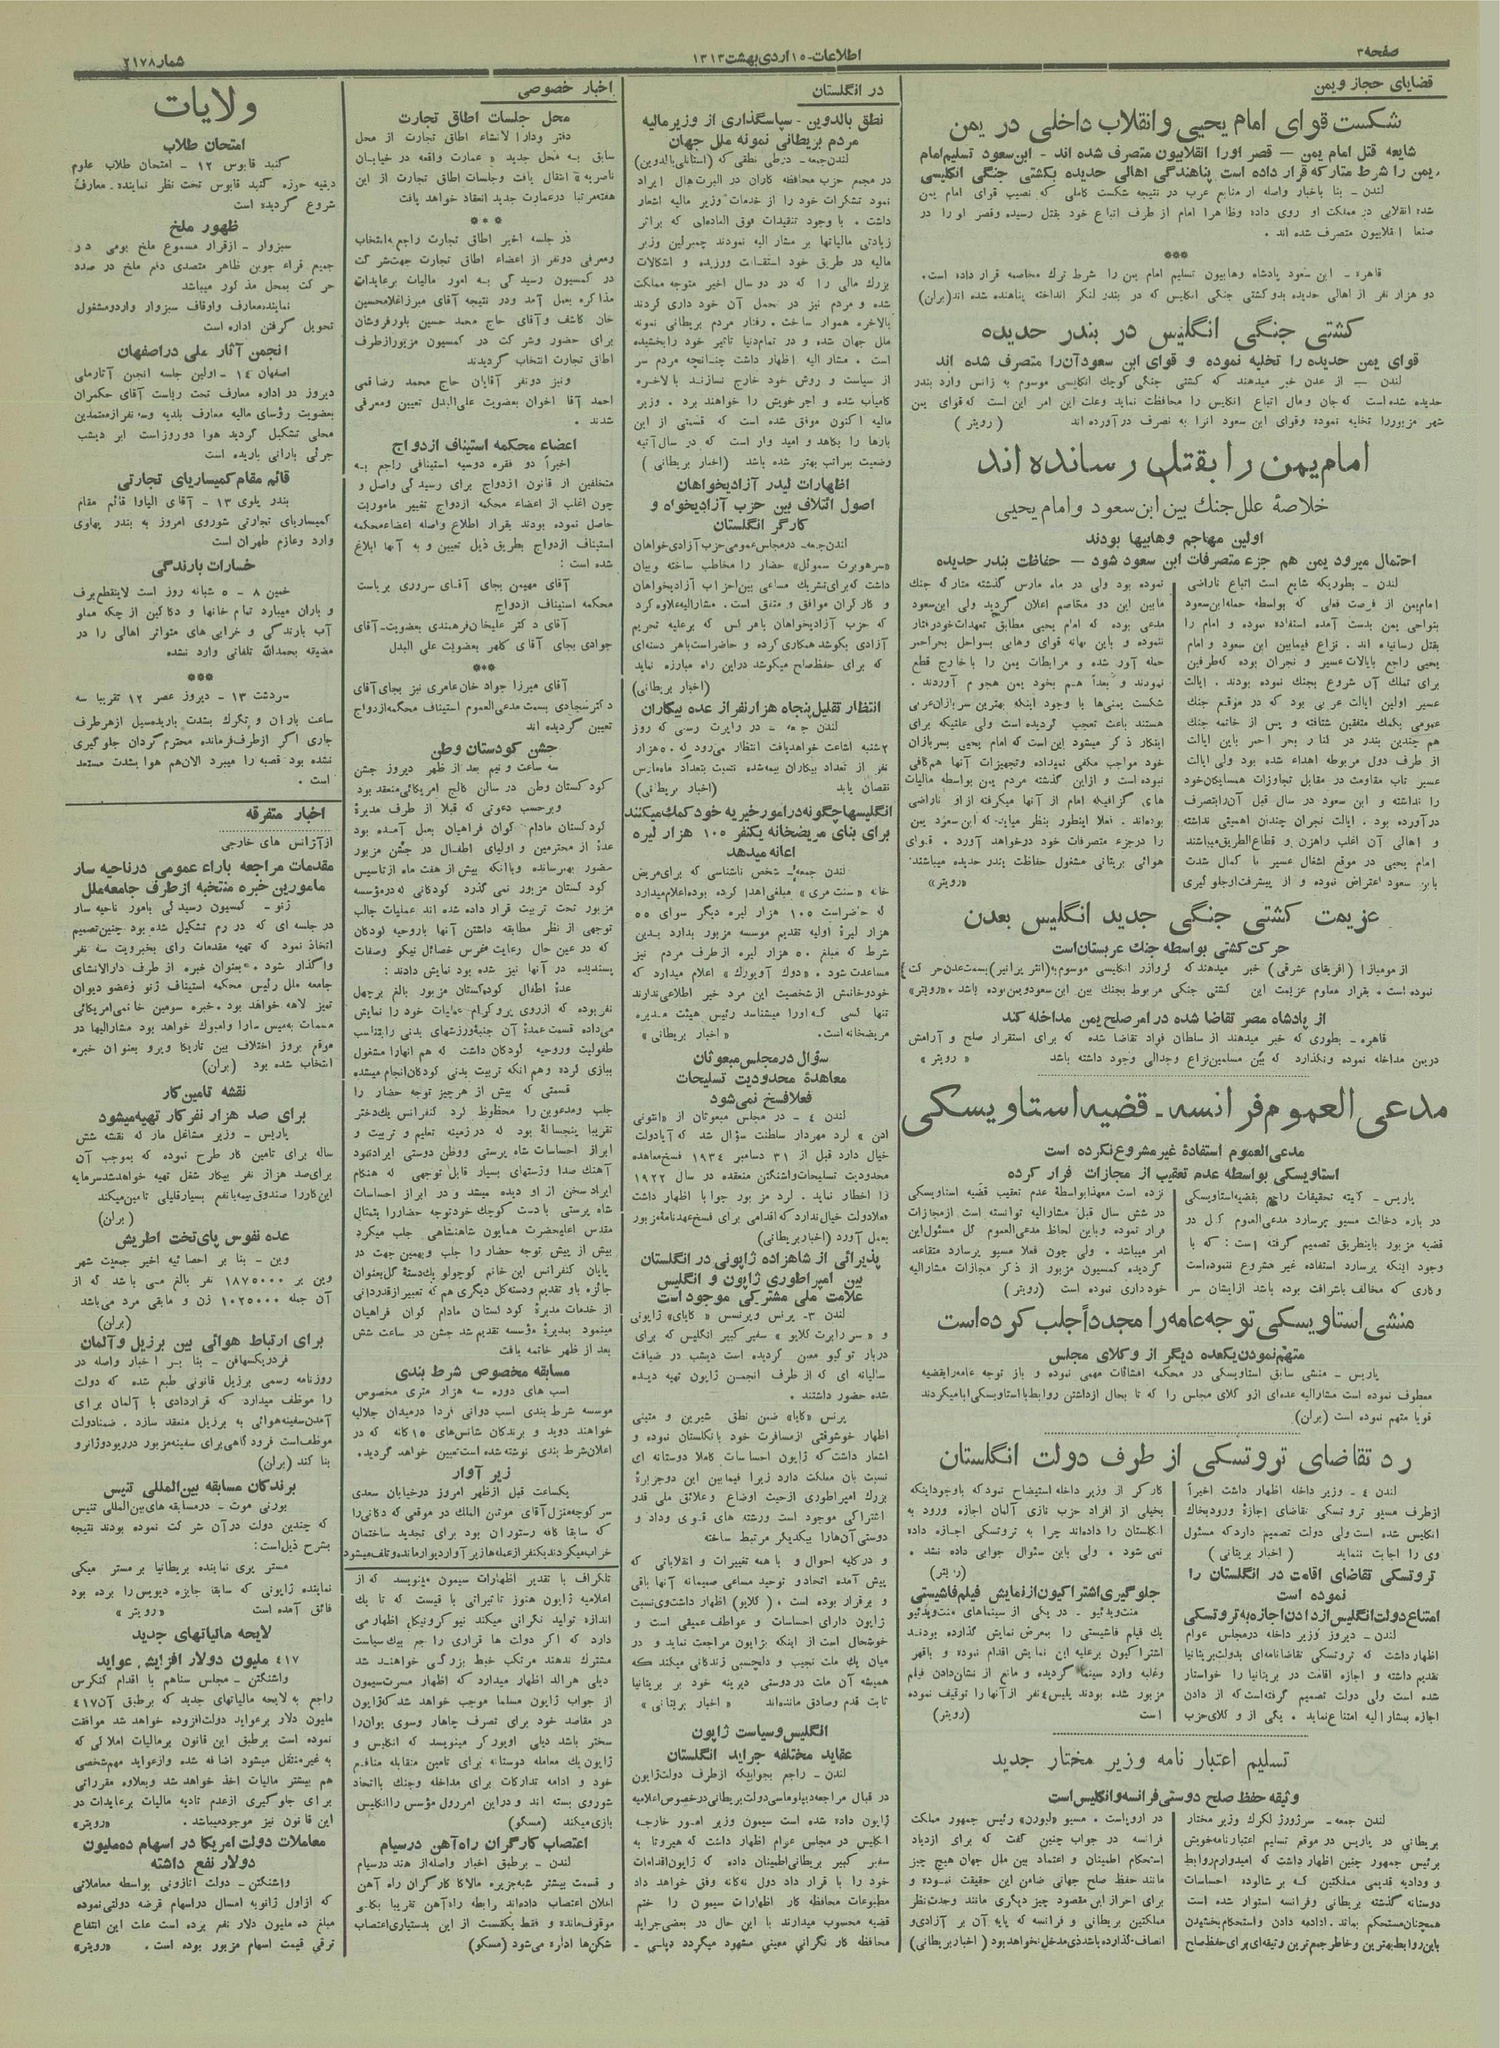 صفحه ۳
اطلاعات - ۱۵ اردی بهشت ۱۳۱۳
شمار ۲۱۷۸
قضایای حجاز و یمن
شکست قوای امام یحیی و انقلاب داخلی در یمن
شایعه قتل امام یمن — قصر او را انقلابیون متصرف شده اند - ابن سعود تسلیم امام
یمن را شرط متارکه قرار داده است پناهندگی اهالی حدیده بکشتی جنگی انگلیسی
لندن - بنا باخبار واصله از منابع عرب در نتیجه شکست کاملی که نصیب قوای امام یمن
شده انقلابی در مملکت او روی داده وظاهرا امام از طرف اتباع خود بقتل رسیده وقصر او را در
صنعا انقلابیون متصرف شده اند .
***
قاهره - ابن سعود پادشاه وهابیون تسلیم امام یمن را شرط ترک مخاصمه قرار داده است .
دو هزار نفر از اهالی حدیده بدو کشتی جنگی انگلیس که در بندر لنگر انداخته پناهنده شده اند (بران)
کشتی جنگی انگلیس در بندر حدیده
قوای یمن حدیده را تخلیه نموده و قوای ابن سعود آن را متصرف شده اند
لندن — از عدن خبر میدهند که کشتی جنگی کوچک انگلیسی موسوم به زانس وارد بندر
حدیده شده است که جان و مال اتباع انگلیس را محافظت نماید وعلت این امر این است که قوای یمن
شهر مزبور را تخلیه نموده وقوای ابن سعود آنرا به تصرف در آورده اند ( رویتر )
امام یمن را بقتل رسانده اند
خلاصهٔ علل جنک بین ابن سعود و امام یحیی
اولین مهاجم وهابیها بودند
احتمال میرود یمن هم جزء متصرفات ابن سعود شود — حفاظت بندر حدیده
لندن - بطوریکه شایع است اتباع ناراضی
امام یمن از فرصت فعلی که بواسطه حمله ابن سعود
بنواحی یمن بدست آمده استفاده نموده و امام را
بقتل رسانیده اند . نزاع فیمابین ابن سعود و امام
یحیی راجع بایالات عسیر و نجران بوده که طرفین
برای تملک آن شروع بجنک نموده بودند . ایالت
عسیر اولین ایالت عربی بود که در موقع جنک
عمومی بکمک متفقین شتافته و پس از خاتمه جنک
هم چندین بندر در کنار بحر احمر باین ایالت
از طرف دول مربوطه اهداء شده بود ولی ایالت
عسیر تاب مقاومت در مقابل تجاوزات همسایگان خود
را نداشته و ابن سعود در سال قبل آن را بتصرف
در آورده بود . ایالت نجران چندان اهمیتی نداشته
و اهالی آن اغلب راهزن و قطاع الطریق میباشند
امام یحیی در موقع اشغال عسیر با کمال شدت
بابن سعود اعتراض نموده و از پیشرفت او جلوگیری
نموده بود ولی در ماه مارس گذشته متارکه جنک
مابین این دو مخاصم اعلان گردید ولی ابن سعود
مدعی بوده که امام یحیی مطابق تعهدات خود رفتار
ننموده و باین بهانه قوای وهابی بسواحل بحر احمر
حمله آور شده و مرابطات یمن را با خارج قطع
نمودند و بعداً هم بخود یمن هجوم آوردند .
شکست یمنی‌ها با وجود اینکه بهترین سربازان عربی
هستند باعث تعجب گردیده است ولی علتیکه برای
اینکار ذکر میشود این است که امام یحیی بسربازان
خود مواجب مکفی نمیداده وتجهیزات آنها هم کافی
نبوده است و ازاین گذشته مردم یمن بواسطه مالیات
های گزافیکه امام از آنها میگرفته از او ناراضی
بوده‌اند . فعلا اینطور بنظر میاید که ابن سعود یمن
را در جزء متصرفات خود در خواهد آورد . قوای
هوائی بریتانی مشغول حفاظت بندر حدیده میباشند
«رویتر»
عزیمت کشتی جنگی جدید انگلیس بعدن
حرکت کشتی بواسطه جنک عربستان است
از مومباز! (افریقای شرقی) خبر میدهند که کروازر انگلیسی موسوم به (انتر پرایز) بسمت عدن حرکت
نموده است . بقرار معلوم عزیمت این کشتی جنگی مربوط بجنک بین ابن سعود و یمن بوده باشد . «رویتر»
از پادشاه مصر تقاضا شده در امر صلح یمن مداخله کند
قاهره - بطوری که خبر میدهند از سلطان فواد تقاضا شده که برای استقرار صلح و آرامش
در یمن مداخله نموده ونگذارد که بین مسلمین نزاع وجدالی وجود داشته باشد « رویتر »
مدعی العموم فرانسه - قضیه استاویسکی
مدعی العموم استفادهٔ غیر مشروع نکرده است
استاویسکی بواسطه عدم تعقیب از مجازات فرار کرده
پاریس - کمیته تحقیقات راجع بقضیه استاویسکی
در باره دخالت مسیو پرسارد مدعی العموم کل در
قضیه مزبور باینطریق تصمیم گرفته است : که با
وجود اینکه پرسارد استفاده غیر مشروع ننموده است
وکاری که مخالف باشرافت بوده باشد ازایشان سر
نزده است معهذا بواسطهٔ عدم تعقیب قضیه استاویسکی
در شش سال قبل مشارالیه توانسته است از مجازات
فرار نموده وباین لحاظ مدعی العموم کل مسئول این
امر میباشد . ولی چون فعلا مسیو پرسارد متقاعد
گردیده کمسیون مزبور از ذکر مجازات مشارالیه
خود داری نموده است (رویتر)
منشی استاویسکی توجه عامه را مجدداً جلب کرده است
متهم نمودن یکعده دیگر از وکلای مجلس
پاریس - منشی سابق استاویسکی در محکمه افشاآت مهمی نموده و باز توجه عامه را بقضیه
معطوف نموده است مشارالیه عده‌ای از و کلای مجلس را که تا بحال از داشتن روابط با استاویسکی ابا میکردند
قویا متهم نموده است (بران)
رد تقاضای تروتسکی از طرف دولت انگلستان
لندن ٤ - وزیر داخله اظهار داشت اخیراً
از طرف مسیو تروتسکی تقاضای اجازهٔ ورود بخاک
انگلیس شده است ولی دولت تصمیم دارد که مسئول
وی را اجابت ننماید ( اخبار بریتانی )
تروتسکی تقاضای اقامت در انگلستان را
نموده است
امتناع دولت انگلیس از دادن اجازه به تروتسکی
لندن - دیروز وزیر داخله در مجلس عوام
اظهار داشت که تروتسکی تقاضانامه‌ای بدولت بریتانیا
تقدیم داشته و اجازه اقامت در بریتانیا را خواستار
شده است ولی دولت تصمیم گرفته است که از دادن
اجازه بمشارالیه امتناع نماید . یکی از و کلای حزب
کارگر از وزیر داخله استیضاح نمود که باوجود اینکه
بخیلی از افراد حزب نازی آلمان اجازه ورود به
انگلستان را داده‌اند چرا به تروتسکی اجازه داده
نمی شود . ولی باین سئوال جوابی داده نشد .
(رویتر)
جلوگیری اشتراکیون از نمایش فیلم فاشیستی
منت ویدئیو - در یکی از سینماهای منت ویدئیو
یک فیلم فاشیستی را بمعرض نمایش گذارده بودند
اشتراکیون برعلیه این نمایش اقدام نموده و باقهر
وغلبه وارد سینما گردیده و مانع از نشان دادن فیلم
مزبور شده بودند پلیس ٤ نفر از آنها را توقیف نموده
است (رویتر)
تسلیم اعتبار نامه وزیر مختار جدید
وثیقه حفظ صلح دوستی فرانسه و انگلیس است
لندن جمعه - سرژورژ کلرک وزیر مختار
بریطانی در پاریس در موقع تسلیم اعتبار نامه خویش
برئیس جمهور چنین اظهار داشت که امیدوارم روابط
و ودادیه قدیمی مملکتین که بر شالوده احساسات
دوستانه گذشته بریطانی وفرانسه استوار شده است
همچنان مستحکم بماند . ادامه دادن واستحکام بخشیدن
باین روابط بهترین و خاطر جمع ترین وثیقه‌ای برای حفظ صلح
در اروپاست . مسیو «لبورن» رئیس جمهور مملکت
فرانسه در جواب چنین گفت که برای ازدیاد
استحکام اطمینان و اعتماد بین ملل جهان هیچ چیز
مانند حفظ صلح جهانی ضامن این حقیقت نبوده و
برای احراز این مقصود چیز دیگری مانند وحدت نظر
مملکتین بریطانی و فرانسه که پایه آن بر آزادی و
انصاف گذارده باشد ذی مدخل نخواهد بود ( اخبار بریطانی)
در انگلستان
نطق بالدوین - سپاسگذاری از وزیر مالیه
مردم بریطانی نمونه ملل جهان
لندن جمعه - در طی نطقی که (استانلی بالدوین)
در مجمع حزب محافظه کاران در البرت هال ایراد
نمود تشکرات خود را از خدمات وزیر مالیه اشعار
داشت . با وجود تنقیدات فوق العاده‌ای که براثر
زیادتی مالیاتها بر مشار الیه نمودند چمبرلین وزیر
مالیه در طریق خود استقامت ورزیده و اشکالات
بزرگ مالی را که در دو سال اخیر متوجه مملکت
شده و مردم نیز در تحمل آن خود داری کردند
بالاخره هموار ساخت . رفتار مردم بریطانی نمونه
ملل جهان شده و در تمام دنیا تاثیر خود را بخشیده
است . مشار الیه اظهار داشت چنانچه مردم سر
از سیاست و روش خود خارج نسازند بالاخره
کامیاب شده و اجر خویش را خواهند برد . وزیر
مالیه اکنون موفق شده است که قسمتی از این
بارها را بکاهد و امید وار است که در سال آتیه
وضعیت بمراتب بهتر شده باشد (اخبار بریطانی )
اظهارات لیدر آزادیخواهان
اصول ائتلاف بین حزب آزادیخواه و
کارگر انگلستان
لندن جمعه - در مجلس عمومی حزب آزادی خواهان
«سر هوبرت سموئل» حضار را مخاطب ساخته وبیان
داشت که برای تشریک مساعی بین احزاب آزادیخواهان
و کارگران موافق و متفق است . مشارالیه علاوه کرد
که حزب آزادیخواهان باهر کس که برعلیه تحریم
آزادی بکوشد همکاری کرده و حاضر است باهر دسته‌ای
که برای حفظ صلح میکوشد دراین راه مبارزه نماید
(اخبار بریطانی)
انتظار تقلیل پنجاه هزار نفر از عده بیکاران
لندن جمعه - در راپرت رسمی که روز
۲شنبه اشاعت خواهد یافت انتظار میرود که ۵۰ هزار
نفر از تعداد بیکاران بیمه شده نسبت بتعداد ماه مارس
نقصان یابد (اخبار بریطانی)
انگلیسها چگونه در امور خیریه خود کمک میکنند
برای بنای مریضخانه یکنفر ۱۰۵ هزار لیره
اعانه میدهد
لندن جمعه - شخص ناشناسی که برای مریض
خانه «سنت مری» مبلغی اهدا کرده بوده اعلام میدارد
که حاضر است ۱۰۵ هزار لیره دیگر سوای ۵۵
هزار لیرهٔ اولیه تقدیم موسسه مزبور بدارد بدین
شرط که مبلغ ۵۰ هزار لیره از طرف مردم نیز
مساعدت شود . «دوک آویورک» اعلام میدارد که
خود وخانمش از شخصیت این مرد خیر اطلاعی ندارند
تنها کسی که او را میشناسد رئیس هیئت مدیره
مریضخانه است. « اخبار بریطانی »
سؤال در مجلس مبعوثان
معاهدهٔ محدودیت تسلیحات
فعلا فسخ نمی شود
لندن ٤ - در مجلس مبعوثان از «انتونی
ادن » لرد مهردار سلطنت سؤال شد که آیا دولت
خیال دارد قبل از ۳۱ دسامبر ۱۹۳٤ فسخ معاهده
محدودیت تسلیحات واشنگتن منعقده در سال ۱۹۲۲
را اخطار نماید . لرد مزبور جوابا اظهار داشت
فعلا دولت خیال ندارد که اقدامی برای فسخ عهدنامهٔ مزبور
بعمل آورد (اخبار بریطانی)
پذیرائی از شاهزاده ژاپونی در انگلستان
بین امپراطوری ژاپون و انگلیس
علامت ملی مشترکی موجود است
لندن ۳- پرنس وپرنسس « کایای» ژاپونی
و « سر رابرت کلایو » سفیر کبیر انگلیس که برای
دربار توکیو معین گردیده است دیشب در ضیافت
سالیانه ای که از طرف انجمن ژاپون تهیه دیده
شده حضور داشتند .
پرنس «کایا» ضمن نطق شیرین و متینی
اظهار خوشوقتی از مسافرت خود بانگلستان نموده و
اشعار داشت که ژاپون احساسات کاملا دوستانه ای
نسبت بآن مملکت دارد زیرا فیمابین این دو جزیرهٔ
بزرک امپراطوری از حیث اوضاع و علائق ملی قدر
اشتراکی موجود است ورشته های قوی وداد و
دوستی آن‌ها را بیکدیگر مرتبط ساخته
و در کلیه احوال و با همه تغییرات و انقلاباتی که
پیش آمده اتحاد و توحید مساعی صمیمانه آنها باقی
و برقرار بوده است . ( کلایو ) اظهار داشت وی نسبت
ژاپون دارای احساسات و عواطف عمیقی است و
خوشحال است از اینکه بژاپون مراجعت نماید و در
میان یک ملت نجیب و دلچسبی زندگانی میکند که
همیشه آن ملت در دوستی دیرینه خود بر بریطانیا
ثابت قدم وصادق مانده‌اند « اخبار بریتانی »
انگلیس و سیاست ژاپون
عقاید مختلفه جراید انگلستان
لندن - راجع بجوابیکه از طرف دولت ژاپون
در قبال مراجعه دیپلوماسی دولت بریطانی در خصوص اعلامیه
ژاپون داده شده است سیمون وزیر امور خارجه
انگلیس در مجلس عوام اظهار داشت که هیروتا به
سفیر کبیر بریطانی اطمینان داده که ژاپون اقدامات
خود را با قرار داد دول نه‌گانه وفق خواهد داد
مطبوعات محافظه کار اظهارات سیمون را ختم
قضیه محسوب میدارند با این حال در بعضی جراید
محافظه کار نگرانی معینی مشهود میگردد دیلی -
اخبار خصوصی
محل جلسات اطاق تجارت
دفتر ودارالانشاء اطاق تجارت از محل
سابق به محل جدید « عمارت واقعه در خیابان
ناصریه » انتقال یافت وجلسات اطاق تجارت از این
هفته مرتبا در عمارت جدید انعقاد خواهد یافت
***
در جلسه اخیر اطاق تجارت راجع بانتخاب
ومعرفی دونفر از اعضاء اطاق تجارت جهت شرکت
در کمسیون رسیدگی به امور مالیات برعایدات
مذاکره بعمل آمد ودر نتیجه آقای میرزا غلامحسین
خان کاشف و آقای حاج محمد حسین بلور فروشان
برای حضور وشرکت در کمسیون مزبور از طرف
اطاق تجارت انتخاب گردیدند
ونیز دونفر آقایان حاج محمد رضا قمی
احمد آقا اخوان بعضویت علی البدل تعیین ومعرفی
شدند .
اعضاء محکمه استیناف ازدواج
اخیراً دو فقره دوسیه استینافی راجع به
متخلفین از قانون ازدواج برای رسیدگی واصل و
چون اغلب از اعضاء محکمه ازدواج تغییر ماموریت
حاصل نموده بودند بقرار اطلاع واصله اعضاء محکمه
استیناف ازدواج بطریق ذیل تعیین و به آنها ابلاغ
شده است :
آقای مهیمن بجای آقای سروری بریاست
محکمه استیناف ازدواج
آقای دکتر علیخان فرهمندی بعضویت - آقای
جوادی بجای آقای کلهر بعضویت علی البدل
***
آقای میرزا جواد خان عامری نیز بجای آقای
دکتر سجادی بسمت مدعی العموم استیناف محکمه ازدواج
تعیین گردیده اند
جشن کودکستان وطن
سه ساعت و نیم بعد از ظهر دیروز جشن
کودکستان وطن در سالن کالج امریکائی منعقد بود
وبرحسب دعوتی که قبلا از طرف مدیرهٔ
کودکستان مادام کوان فراهیان بعمل آمده بود
عده‌ٔ از محترمین و اولیای اطفال در جشن مزبور
حضور بهمرسانده وباآنکه بیش از هفت ماه از تاسیس
کودکستان مزبور نمی گذرد کودکانی که در مؤسسه
مزبور تحت تربیت قرار داده شده اند عملیات جالب
توجهی از نظر مطابقه داشتن آنها باروحیه کودکان
که در عین حال رعایت غرس خصائل نیکو وصفات
پسندیده در آنها نیز شده بود نمایش دادند :
عدهٔ اطفال کودکستان مزبور بالغ بر چهل
نفر بوده که از روی پروگرام عملیات خود را نمایش
می‌داده قسمت عمدهٔ آن جنبهٔ ورزشهای بدنی را بتناسب
طفولیت وروحیه کودکان داشت که هم انها را مشغول
ببازی کرده وهم آنکه تربیت بدنی کودکان انجام میشده
قسمتی که بیش از هر چیز توجه حضار را
جلب ومدعوین را محظوظ کرد کنفرانس یک دختر
تقریبا پنجسالهٔ بود که در زمینه تعلیم و تربیت و
ابراز احساسات شاه پرستی ووطن دوستی ایراد نمود
آهنک صدا وژستهای بسیار قابل توجهی که هنگام
ایراد سخن از او دیده میشد و در ابراز احساسات
شاه پرستی بادست کوچک خود توجه حضار را بتمثال
مقدس اعلیحضرت همایون شاهنشاهی جلب میکرد
بیش از پیش توجه حضار را جلب وبهمین جهت در
پایان کنفرانس این خانم کوچولو یک دستهٔ گل بعنوان
جائزه باو تقدیم ودسته گل دیگری هم که تعبیر از قدردانی
از خدمات مدیرهٔ کودکستان مادام کوان فراهیان
مینمود بمدیرهٔ مؤسسه تقدیم شد جشن در ساعت شش
بعد از ظهر خاتمه یافت
مسابقه مخصوص شرط بندی
اسب های دوره سه هزار متری مخصوص
موسسه شرط بندی اسب دوانی فردا در میدان جلالیه
خواهند دوید و برندگان شانس‌های ۱۵گانه که در
اعلان شرط بندی نوشته شده است تعیین خواهد گردید.
زیر آوار
یکساعت قبل از ظهر امروز در خیابان سعدی
سر کوچه منزل آقای موتمن الملک در موقعی که دکانی را
که سابقا کافه رستوران بود برای تجدید ساختمان
خراب میکردند یکنفر از عمله‌ها زیر آوار دیوار مانده وتلف میشود
تلگراف با تقدیر اظهارات سیمون مینویسد که از
اعلامیه ژاپون هنوز تاثیراتی با قیست که تا یک
اندازه تولید نگرانی میکند نیوکرونیکل اظهار می
دارد که اگر دولت ها قراری را جمع بیک سیاست
مشترک ندهند مرتکب خبط بزرگی خواهند شد
دیلی هرالد اظهار میدارد که اظهار مسرت سیمون
از جواب ژاپون مسلما موجب خواهد شد که ژاپون
در مقاصد خود برای تصرف چاهار وسوی یوان را
سخت‌تر باشد دیلی اوبورکر مینویسد که انگلیس و
ژاپون یک معامله دوستانه برای تامین متقابله منافع
خود و ادامه تدارکات برای مداخله وجنک بااتحاد
شوروی بسته اند و دراین امر رول مؤسس را انگلیس
بازی میکند (مسکو)
اعتصاب کارگران راه آهن در سیام
لندن - برطبق اخبار واصله از هند در سیام
و قسمت بیشتر شبه جزیره مالاکا کارگران راه آهن
اعلان اعتصاب داده‌اند رابطه راه آهن تقریبا بکلی
موقوف مانده و فقط یکقسمت از این بدستیاری اعتصاب
شکن‌ها اداره می‌شود (مسکو)
ولایات
امتحان طلاب
گنبد قابوس ۱۲ - امتحان طلاب علوم
دینیه حوزه گنبد قابوس تحت نظر نماینده . معارف
شروع گردیده است
ظهور ملخ
سبزوار - از قرار مسموع ملخ بومی در
جمیع قراء جوین ظاهر متصدی دفع ملخ در صدد
حرکت بمحل مذکور میباشد
نماینده معارف واوقاف سبزوار وارد و مشغول
تحویل گرفتن اداره است
انجمن آثار ملی در اصفهان
اصفهان ۱٤ - اولین جلسه انجمن آثار ملی
دیروز در اداره معارف تحت ریاست آقای حکمران
بعضویت رؤسای مالیه معارف بلدیه وسه نفر از معتمدین
محلی تشکیل گردید هوا دو روز است ابر دیشب
جزئی بارانی باریده است
قائم مقام کمیساریای تجارتی
بندر پهلوی ۱۳ - آقای الیاوا قائم مقام
کمیساریای تجارتی شوروی امروز به بندر پهلوی
وارد وعازم طهران است
خسارات بارندگی
خمین ۸ - ۵ شبانه روز است لاینقطع برف
و باران میبارد تمام خانها و دکاکین از چکه مملو
آب بارندگی و خرابی های متواتر اهالی را در
مضیقه بحمدالله تلفاتی وارد نشده
***
سردشت ۱۳ - دیروز عصر ۱۲ تقریبا سه
ساعت باران و تگرک بشدت باریده سیل از هر طرف
جاری اگر از طرف فرمانده محترم گردان جلوگیری
نشده بود قصبه را میبرد الان هم هوا بشدت مستعد
است .
اخبار متفرقه
از آژانس های خارجی
مقدمات مراجعه باراء عمومی در ناحیه سار
مامورین خبره منتخبه از طرف جامعه ملل
ژنو - کمسیون رسیدگی بامور ناحیه سار
در جلسه ای که در رم تشکیل شده بود چنین تصمیم
اتخاذ نمود که تهیه مقدمات رای بخبرویت سه نفر
واگذار شود . بعنوان خبره از طرف دارالانشای
جامعه ملل رئیس محکمه استیناف ژنو وعضو دیوان
تمیز لاهه خواهد بود . خبره سومین خانمی امریکائی
مسمات به میس سارا وامبوک خواهد بود مشارالیها در
موقع بروز اختلاف بین تاریکا وپرو بعنوان خبره
انتخاب شده بود (بران)
نقشه تامین کار
برای صد هزار نفر کار تهیه میشود
پاریس - وزیر مشاغل مار که نقشه شش
ساله برای تامین کار طرح نموده که بموجب آن
برای صد هزار نفر بیکار شغل تهیه خواهد شد سرمایه
این کار را صندوق بیمه با نفع بسیار قلیلی تامین میکند
(بران)
عده نفوس پای تخت اطریش
وین - بنا بر احصائیه اخیر جمعیت شهر
وین بر ۱۸۷۵۰۰۰ نفر بالغ می باشد که از
آن جمله ۱۰۲۵۰۰۰ زن و مابقی مرد می‌باشد
(بران)
برای ارتباط هوائی بین برزیل و آلمان
فردریکسهافن - بنا بر اخبار واصله در
روزنامه رسمی برزیل قانونی طبع شده که دولت
را موظف میدارد که قراردادی با آلمان برای
آمدن سفینه هوائی به برزیل منعقد سازد . ضمنا دولت
موظف است فرودگاهی برای سفینه مزبور در ریودوژانرو
بنا کند (بران)
برندگان مسابقه بین المللی تنیس
بورنی موت - در مسابقه های بین المللی تنیس
که چندین دولت در آن شرکت نموده بودند نتیجه
بشرح ذیل است :
مستر پری نماینده بریطانیا بر مستر میکی
نماینده ژاپونی که سابقا جایزه دیویس را برده بود
فائق آمده است «رویتر »
لایحه مالیاتهای جدید
٤۱۷ ملیون دولار افزایش عواید
واشنگتن - مجلس سناهم با اقدام کنگرس
راجع به لایحه مالیاتهای جدید که برطبق آن ٤۱۷
ملیون دلار برعواید دولت افزوده خواهد شد موافقت
نموده است برطبق این قانون بر مالیات املاکی که
به غیر منتقل میشود اضافه شده وازعواید مهم شخصی
هم بیشتر مالیات اخذ خواهد شد وبعلاوه مقرراتی
برای جلوگیری از عدم تادیه مالیات برعایدات در
این قانون نیز موجود میباشد . «رویتر»
معاملات دولت امریکا در اسهام ده ملیون
دولار نفع داشته
واشنگتن - دولت اتازونی بواسطه معاملاتی
که ازاول ژانویه امسال در اسهام قرضه دولتی نموده
مبلغ ده ملیون دلار نفع برده است علت این انتفاع
ترقی قیمت اسهام مزبور بوده است . «رویتر»